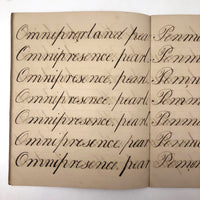 Omnipresland, pearl Penm
Omnipresence, pearl Penm
Omnipresence, pearl Penm
Omnipresence, pearl Penm
Omnipresence, pearl Penm
Omnipresence, pearl Penm
Omnipresence, pearl Penm